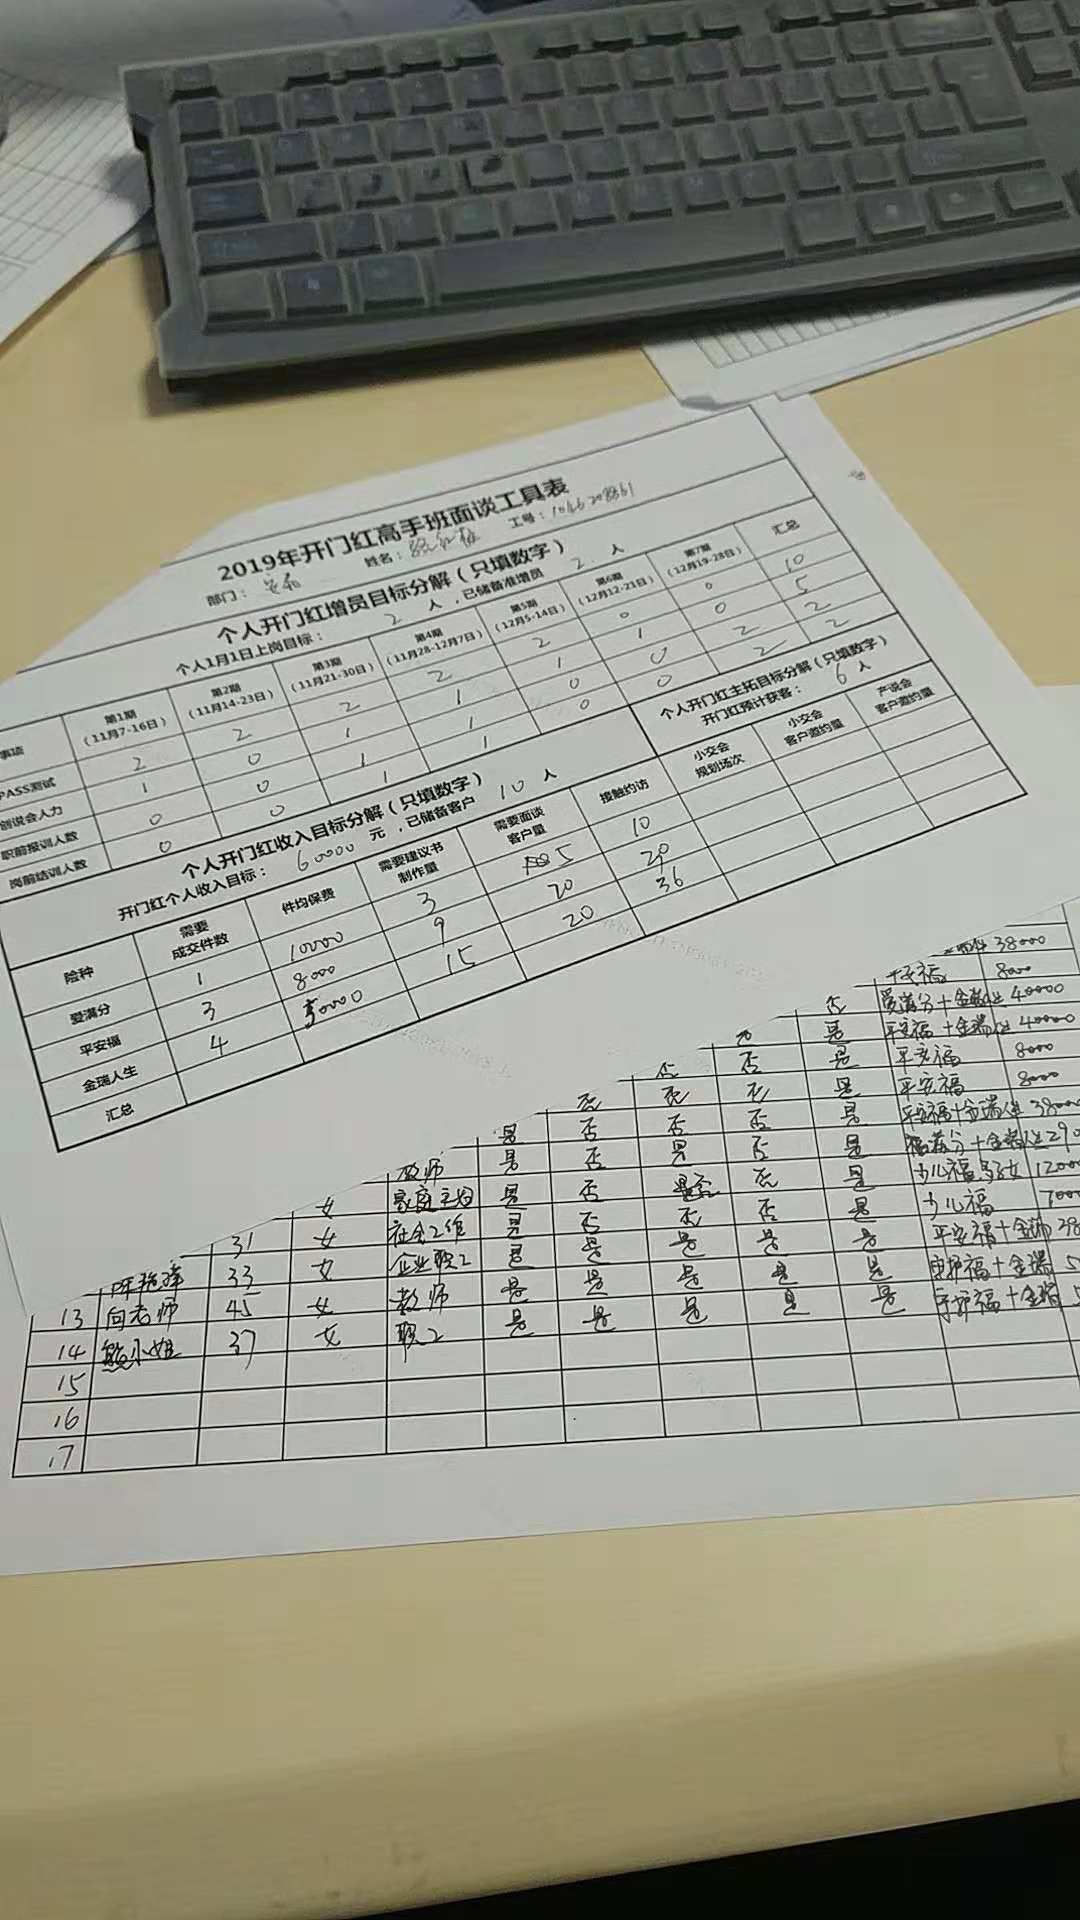 2019年开门红高手班面谈工具表
部门： 姓名： 工号：
个人开门红增员目标分解（只填数字）
个人1月1日上岗目标： 2 人，已储备准增员 2 人
事项 第1期（11月7-16日） 第2期（11月14-23日） 第3期（11月21-30日） 第4期（11月28-12月7日） 第5期（12月5-14日） 第6期（12月12-21日） 第7期（12月19-28日） 汇总
PASS测试 2 2 2 2 2 0 0 10
创说会人力 1 0 1 1 1 1 0 5
职前报训人数 0 0 1 1 0 0 2 2
岗前结训人数 0 0 1 1 0 0 2 2
个人开门红收入目标分解（只填数字）
开门红个人收入目标： 60000 元，已储备客户 10 人
个人开门红主拓目标分解（只填数字）
开门红预计获客： 6 人
险种 需要成交件数 件均保费 需要建议书制作量 需要面谈客户量 接触约访 小交会规划场次 小交会客户邀约量 产说会客户邀约量
爱满分 1 10000 3 5 10
平安福 3 8000 9 20 29
金瑞人生 4 30000 15 20 36
汇总
38000
平安福 8000
否 爱满分+金瑞人生 40000
否 是 平安福+金瑞人生 40000
否 否 是 平安福 8000
否 否 否 是 平安福 8000
是 否 否 否 是 平安福+金瑞人生 38000
教师 是 否 是 否 是 满分+金瑞人生
女 家庭主妇 是 否 否 是 少儿福 12000
31 女 社会工作 是 否 否 否 是 少儿福
33 女 企业职工 是 是 是 是 是 平安福+金瑞
13 向老师 45 女 教师 是 是 是 是 是 守护福+金瑞
14 熊小姐 37 女 职工 是 是 是 是 是 守护福+金瑞
15
16
17